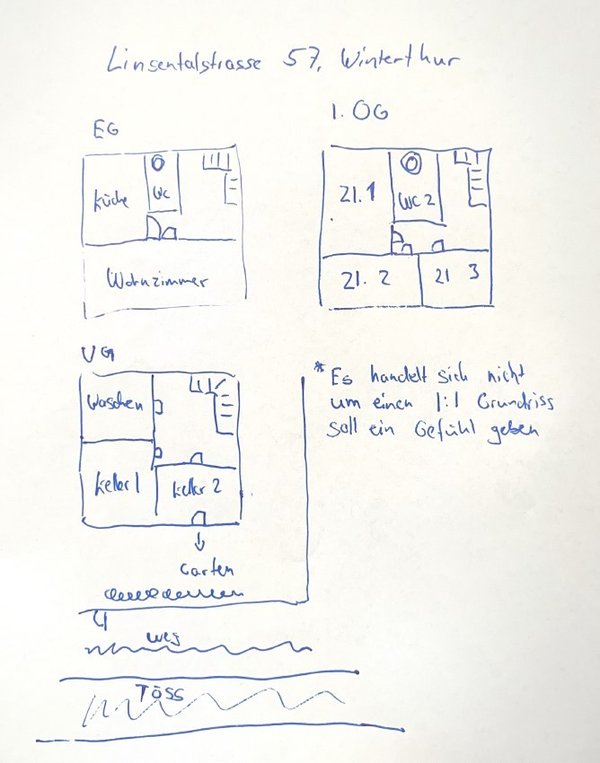 Linsentalstrasse 57, Winterthur
EG
Küche
WC
Wohnzimmer
1. OG
Zi. 1
WC 2
Zi. 2
Zi 3
UG
Waschen
Keller 1
Keller 2
Garten
Weg
Töss
*Es handelt sich nicht
um einen 1:1 Grundriss
soll ein Gefühl geben